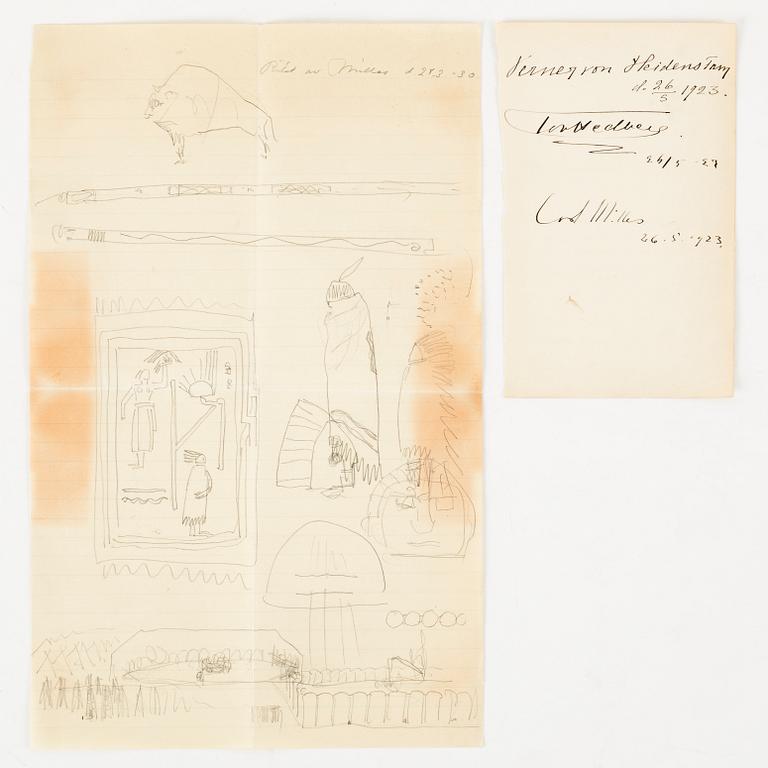 Ritat av Milles d 27.3 -30
Verner von Heidenstam
d. 26/5 1923.
Tor Hedberg.
26/5 - 23
Carl Milles
26.5.-923.